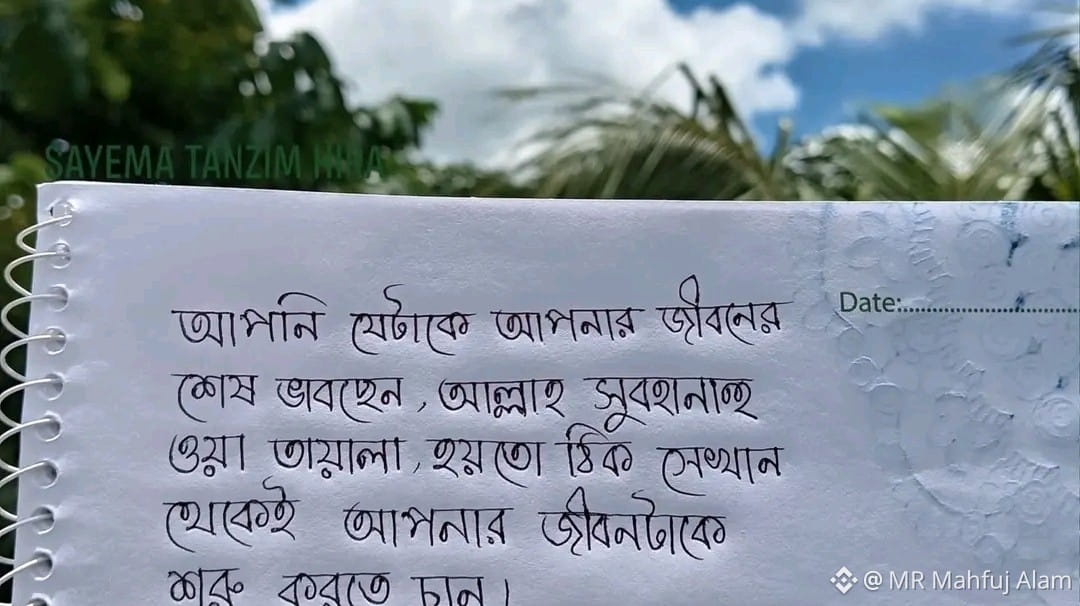 SAYEMA TANZIM
Date:
আপনি যেটাকে আপনার জীবনের
শেষ ভাবছেন, আল্লাহ সুবহানাহু
ওয়া তায়ালা, হয়তো ঠিক সেখান
থেকেই আপনার জীবনটাকে
শুরু করতে চান।
@ MR Mahfuj Alam